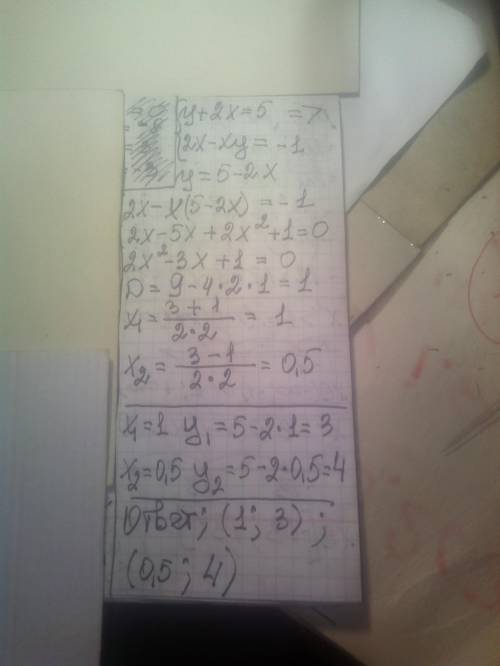 {y+2x=5 =>
{2x-xy=-1
y=5-2x
2x-x(5-2x)=-1
2x-5x+2x²+1=0
2x²-3x+1=0
D=9-4·2·1=1
x₁=(3+1)/(2·2)=1
x₂=(3-1)/(2·2)=0,5
x₁=1 y₁=5-2·1=3
x₂=0,5 y₂=5-2·0,5=4
Ответ; (1; 3);
(0,5; 4)